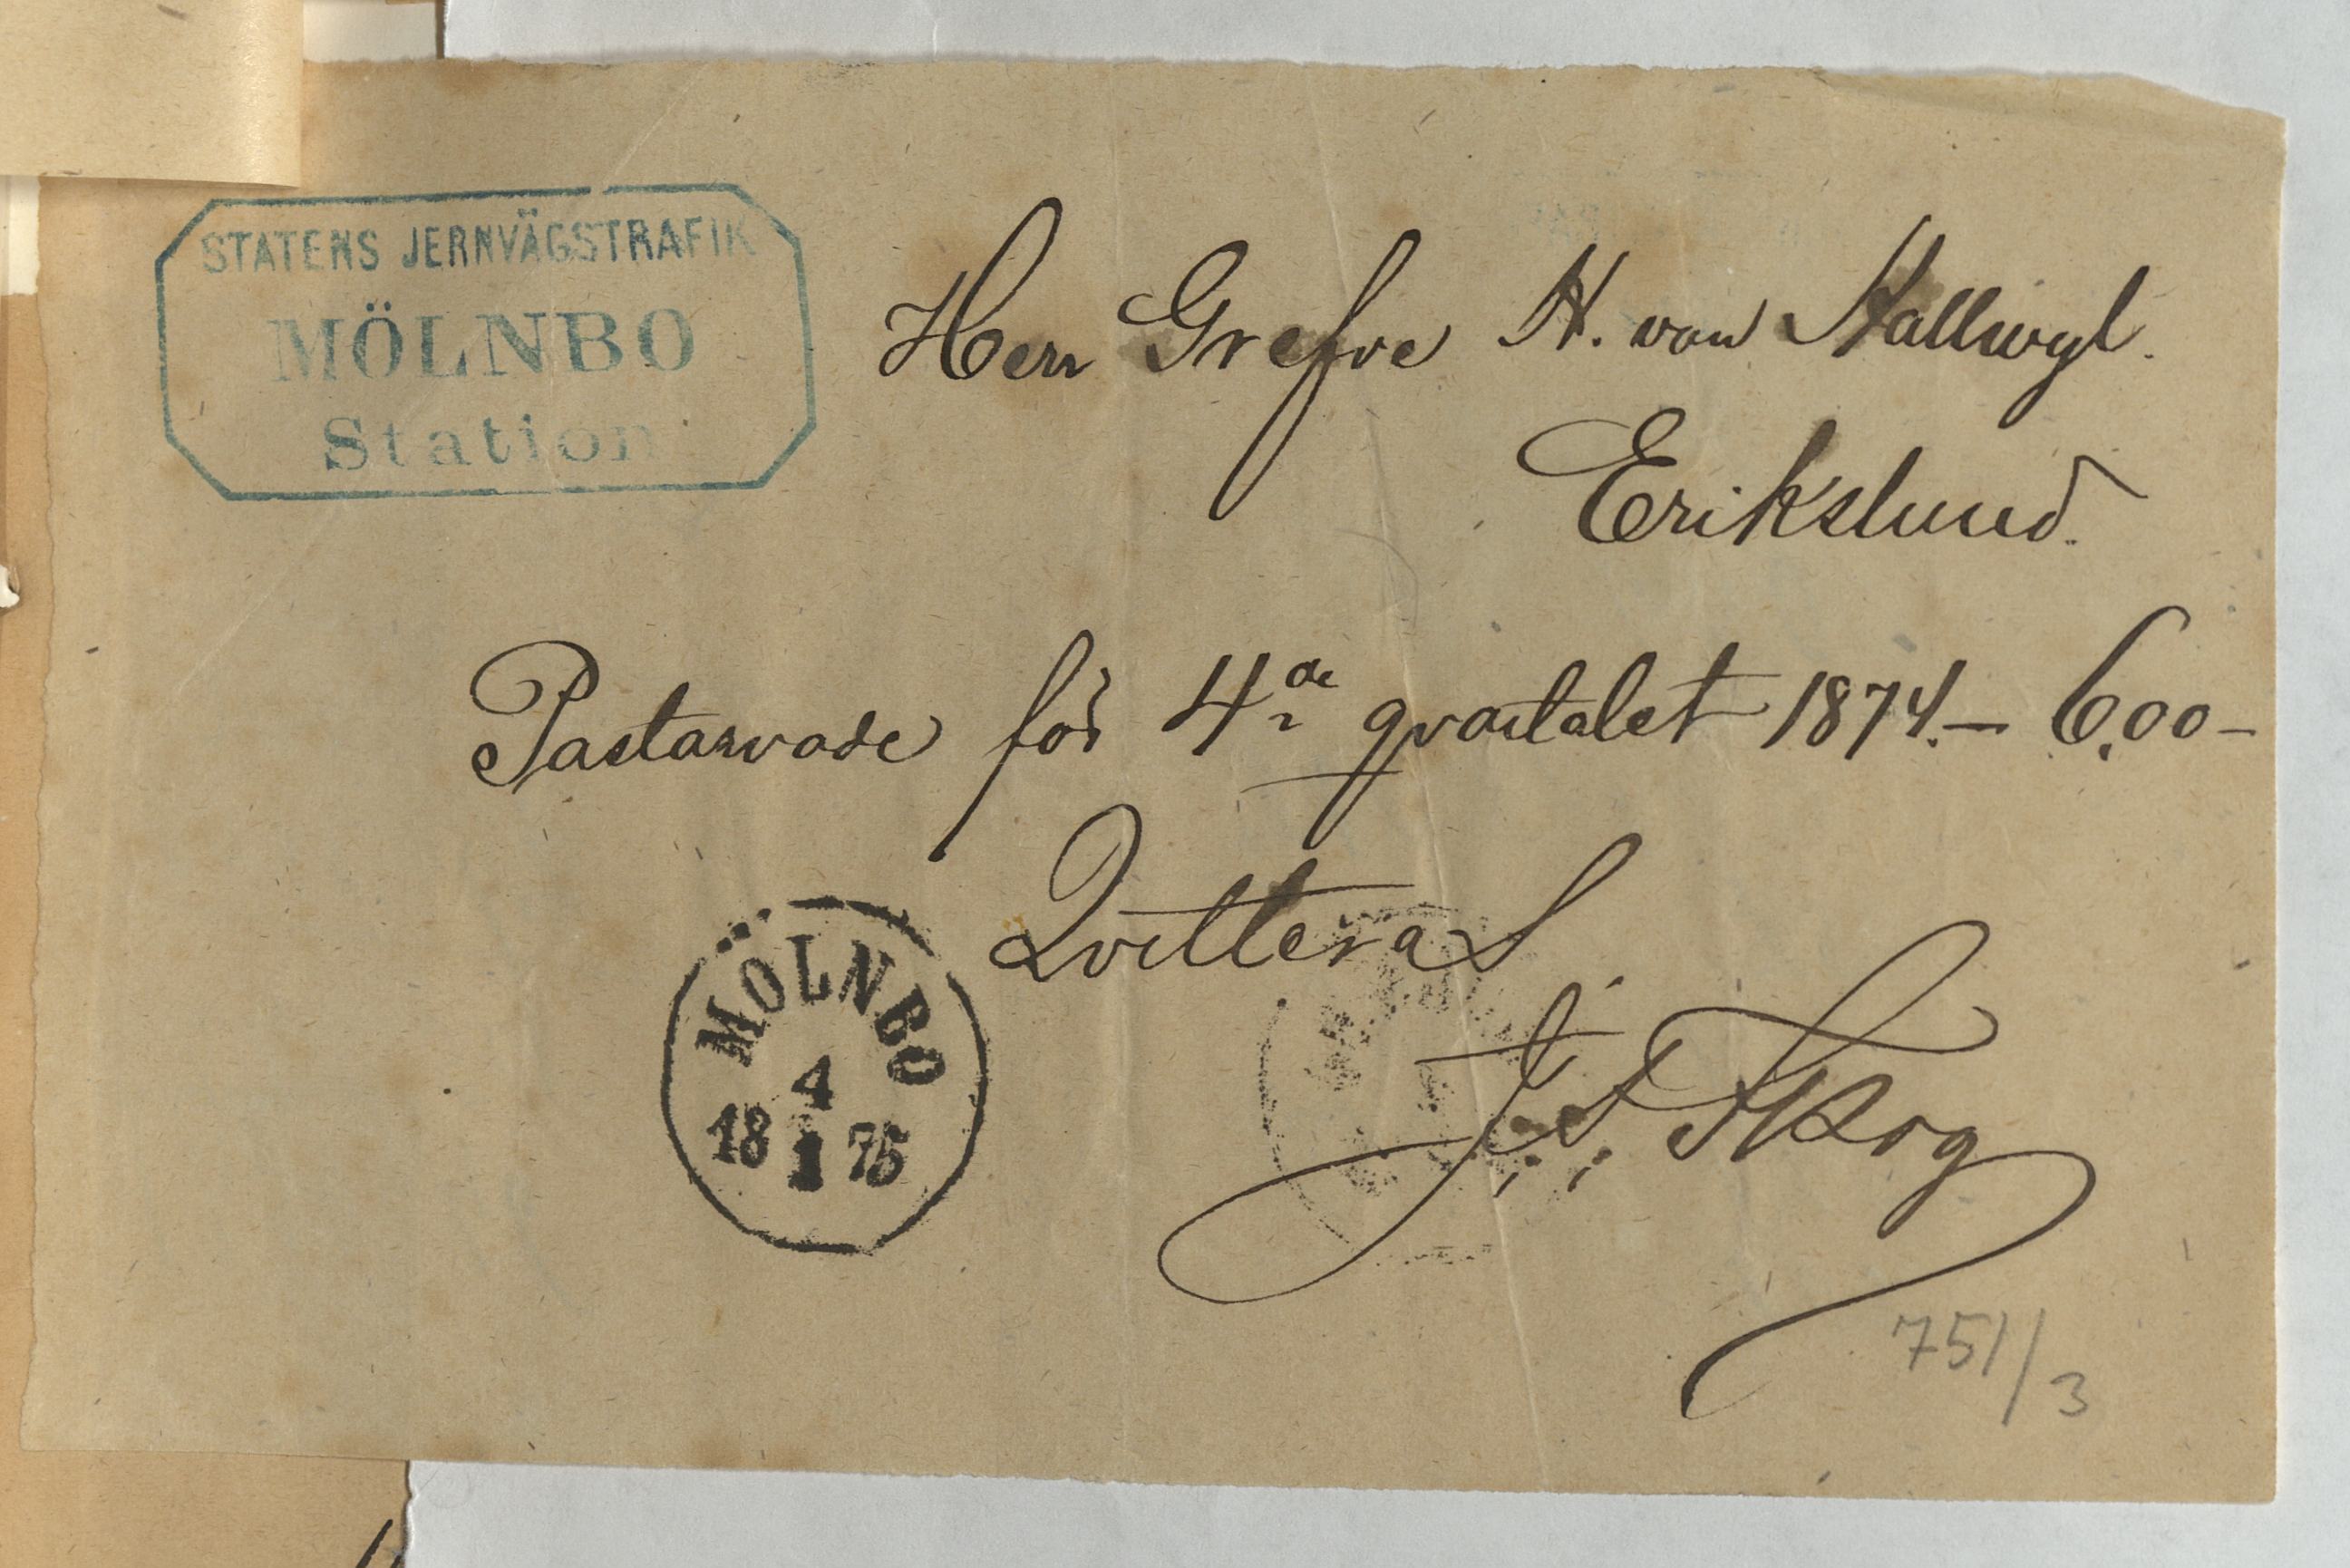 STATENS JERNVÄGSTRAFIK
MÖLNBO
Station
Herr Grefve H. von Hallwyl.
Erikslund.
Postarvode för 4de qvartalet 1874.— 6,00—
Qvitteras
Skog
MÖLNBO
4
18 1 75
751/3